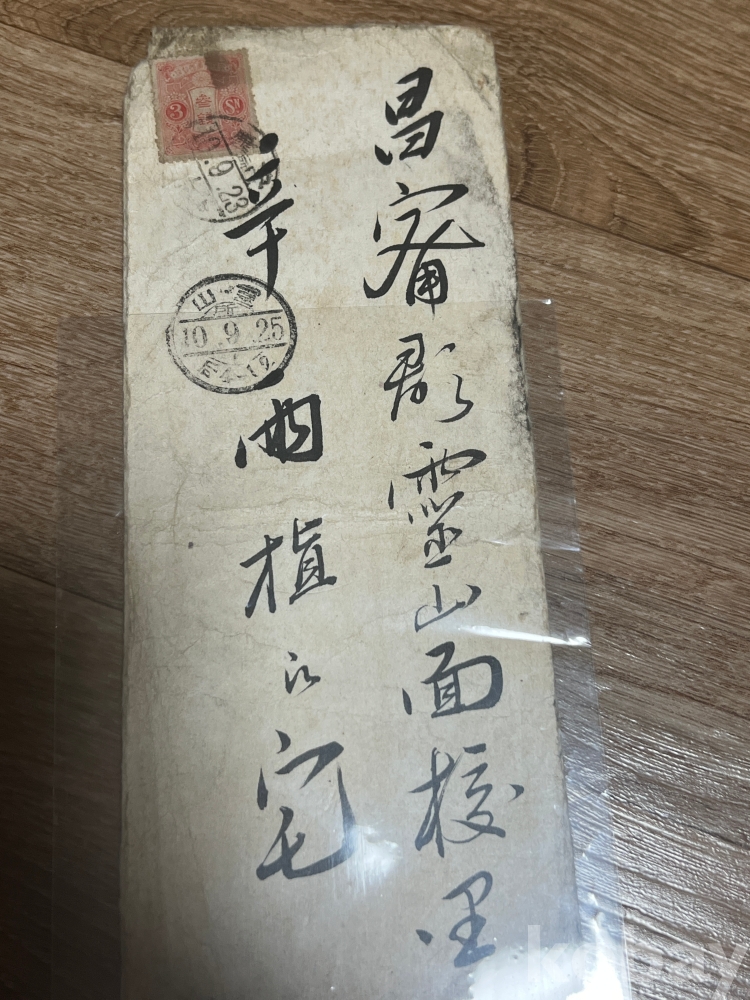 昌甯郡靈山面校里
辛 植氏宅
3 Sn
9.23
靈山
10.9.25